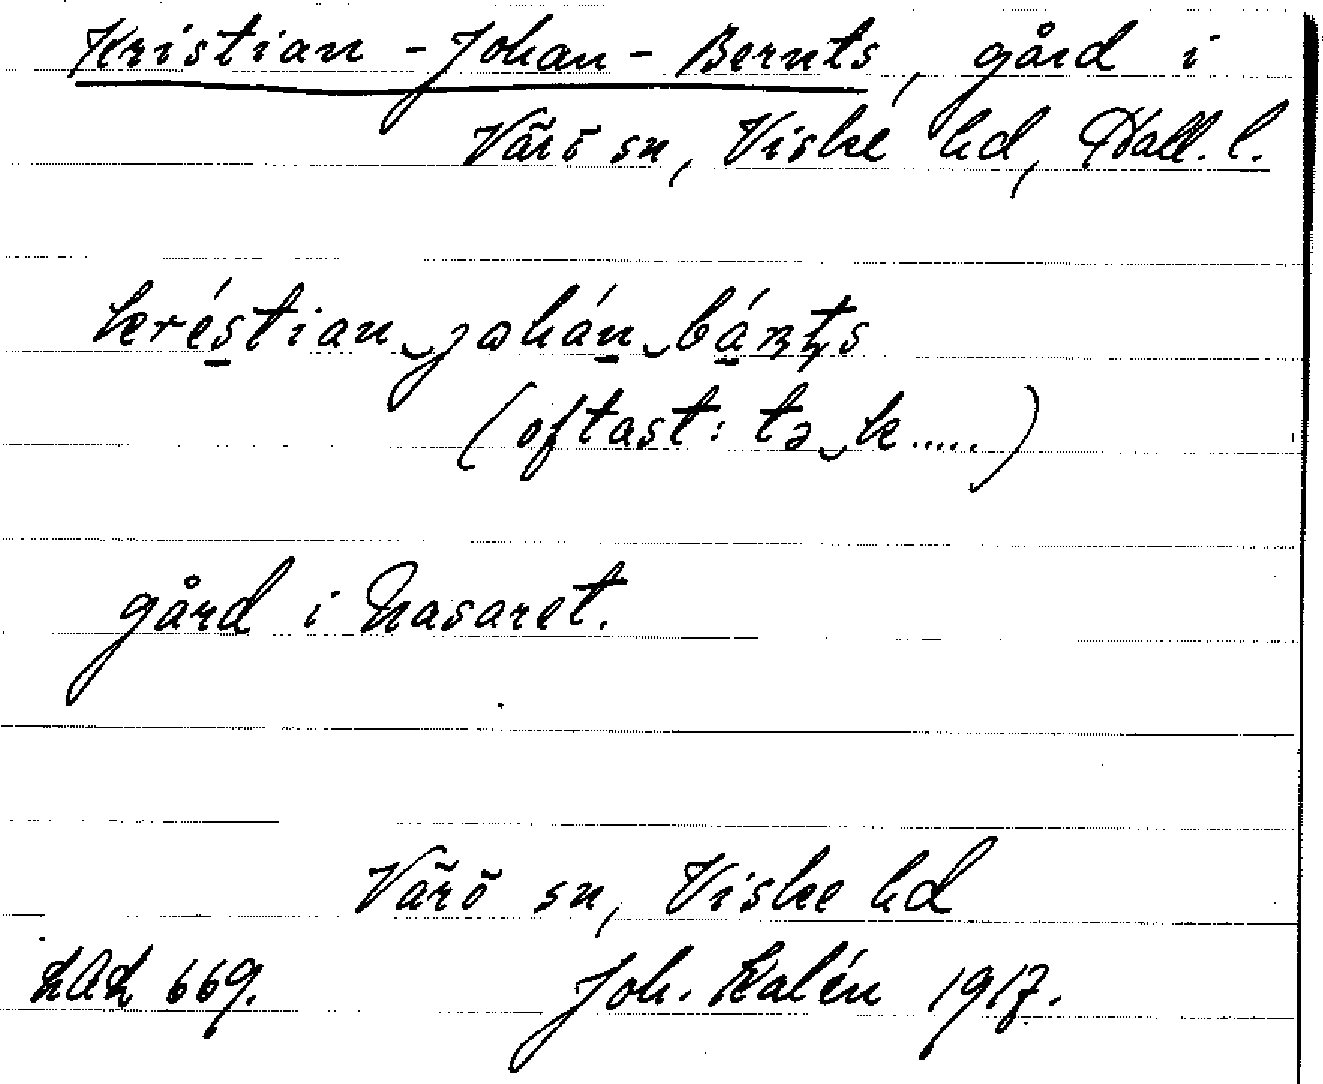 Kristian-Johan-Bernts, gård i
Värö sn, Viske hd, Hall. l.
kréstian‿johán‿bán̦țs
(oftast: tə‿k.....)
gård i Nasaret.
Värö sn, Viske hd
LAL 669. Joh. Kalén 1917.